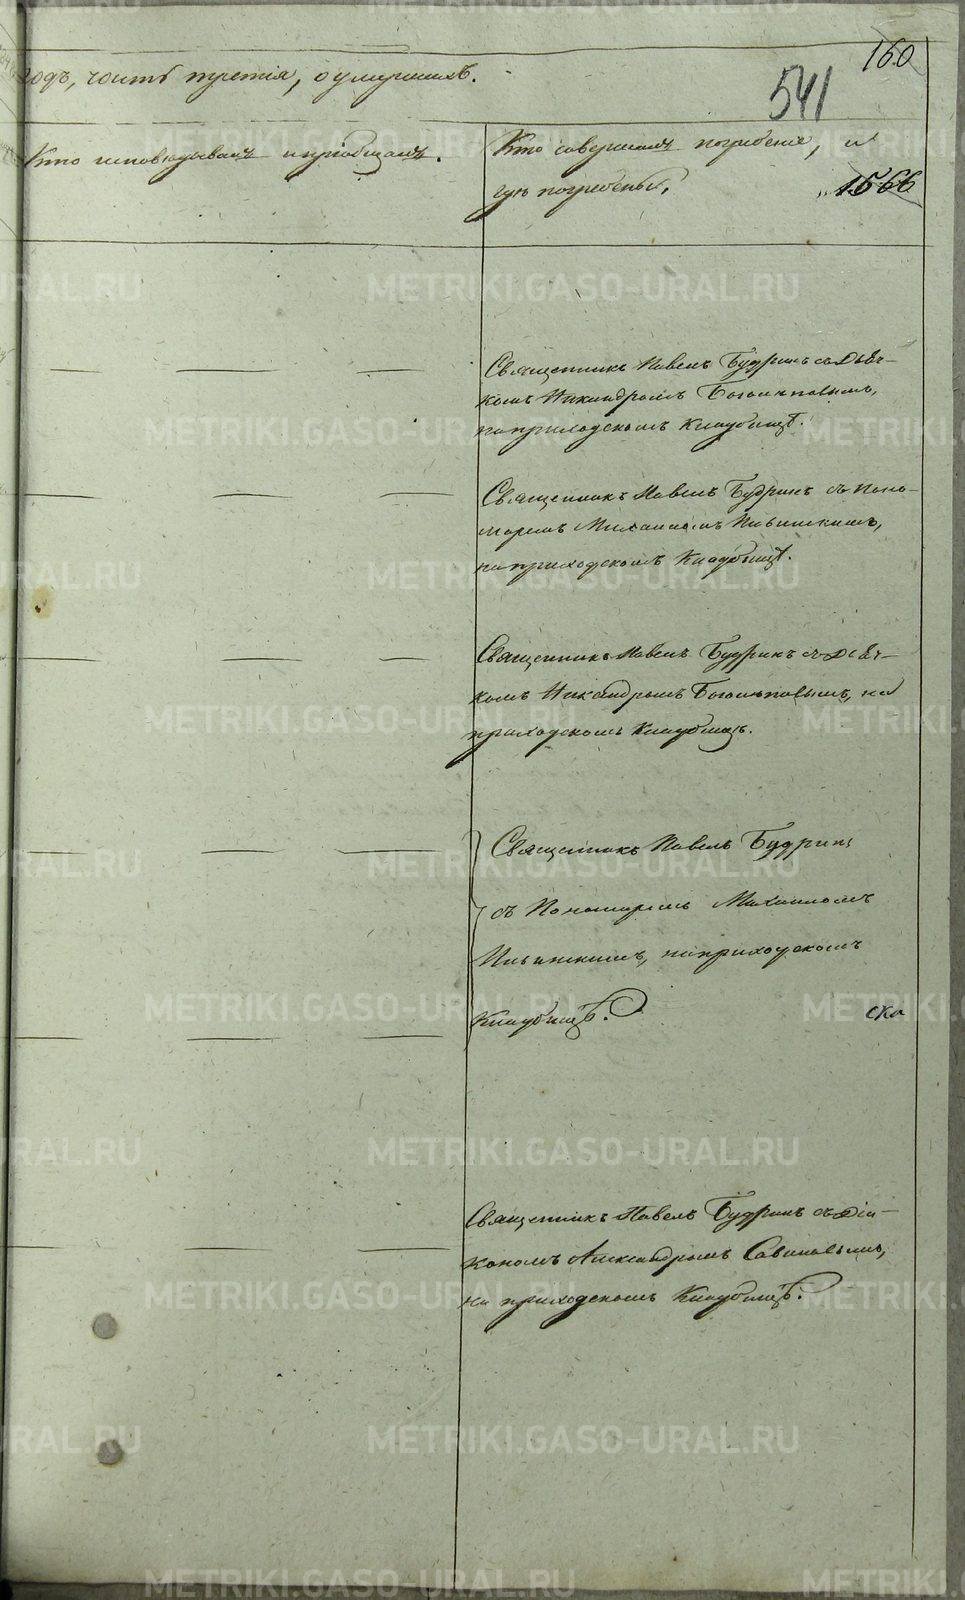 160
541
годъ, часть третія, о умершихъ.
Кто исповѣдывалъ и пріобщалъ.
Кто совершалъ погребеніе, и
гдѣ погребены,
1566
Священникъ Павелъ Будринъ съ Дьяч-
комъ Никандромъ Богомоловымъ,
на приходскомъ Кладбищѣ.
Священникъ Павелъ Будринъ съ Поно-
маремъ Михаиломъ Ильинскимъ,
на приходскомъ Кладбищѣ.
Священникъ Павелъ Будринъ съ Дьяч-
комъ Никандромъ на
приходскомъ Кладбищѣ.
Священникъ Павелъ Будринъ
съ Пономаремъ Михаиломъ
Ильинскимъ, на приходскомъ
Кладбищѣ.
ска
Священникъ Павелъ Будринъ съ Діа-
кономъ Александромъ Савиновымъ,
на приходскомъ Кладбищѣ.
METRIKI.GASO-URAL.RU